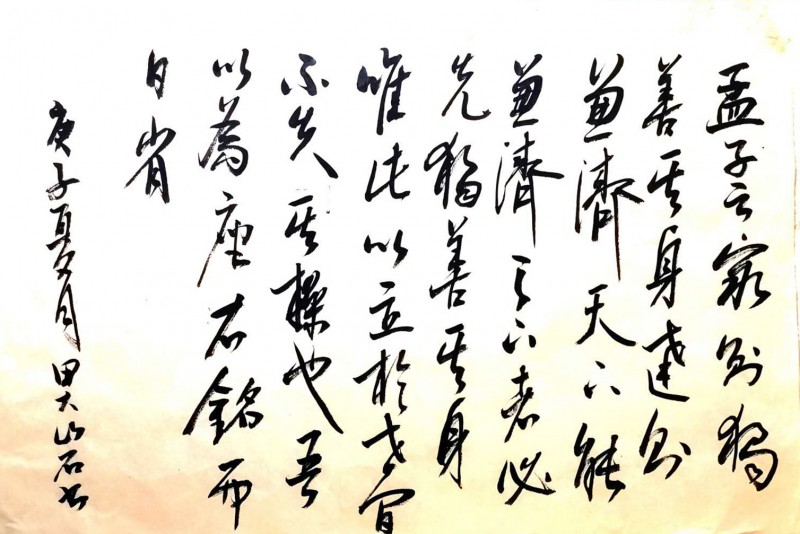 孟子云窮則獨
善其身達則
兼濟天下能
兼濟天下者必
先獨善其身
唯此以立於世間
不失其操也吾
以為座右銘而
日省
庚子夏月田大山石書